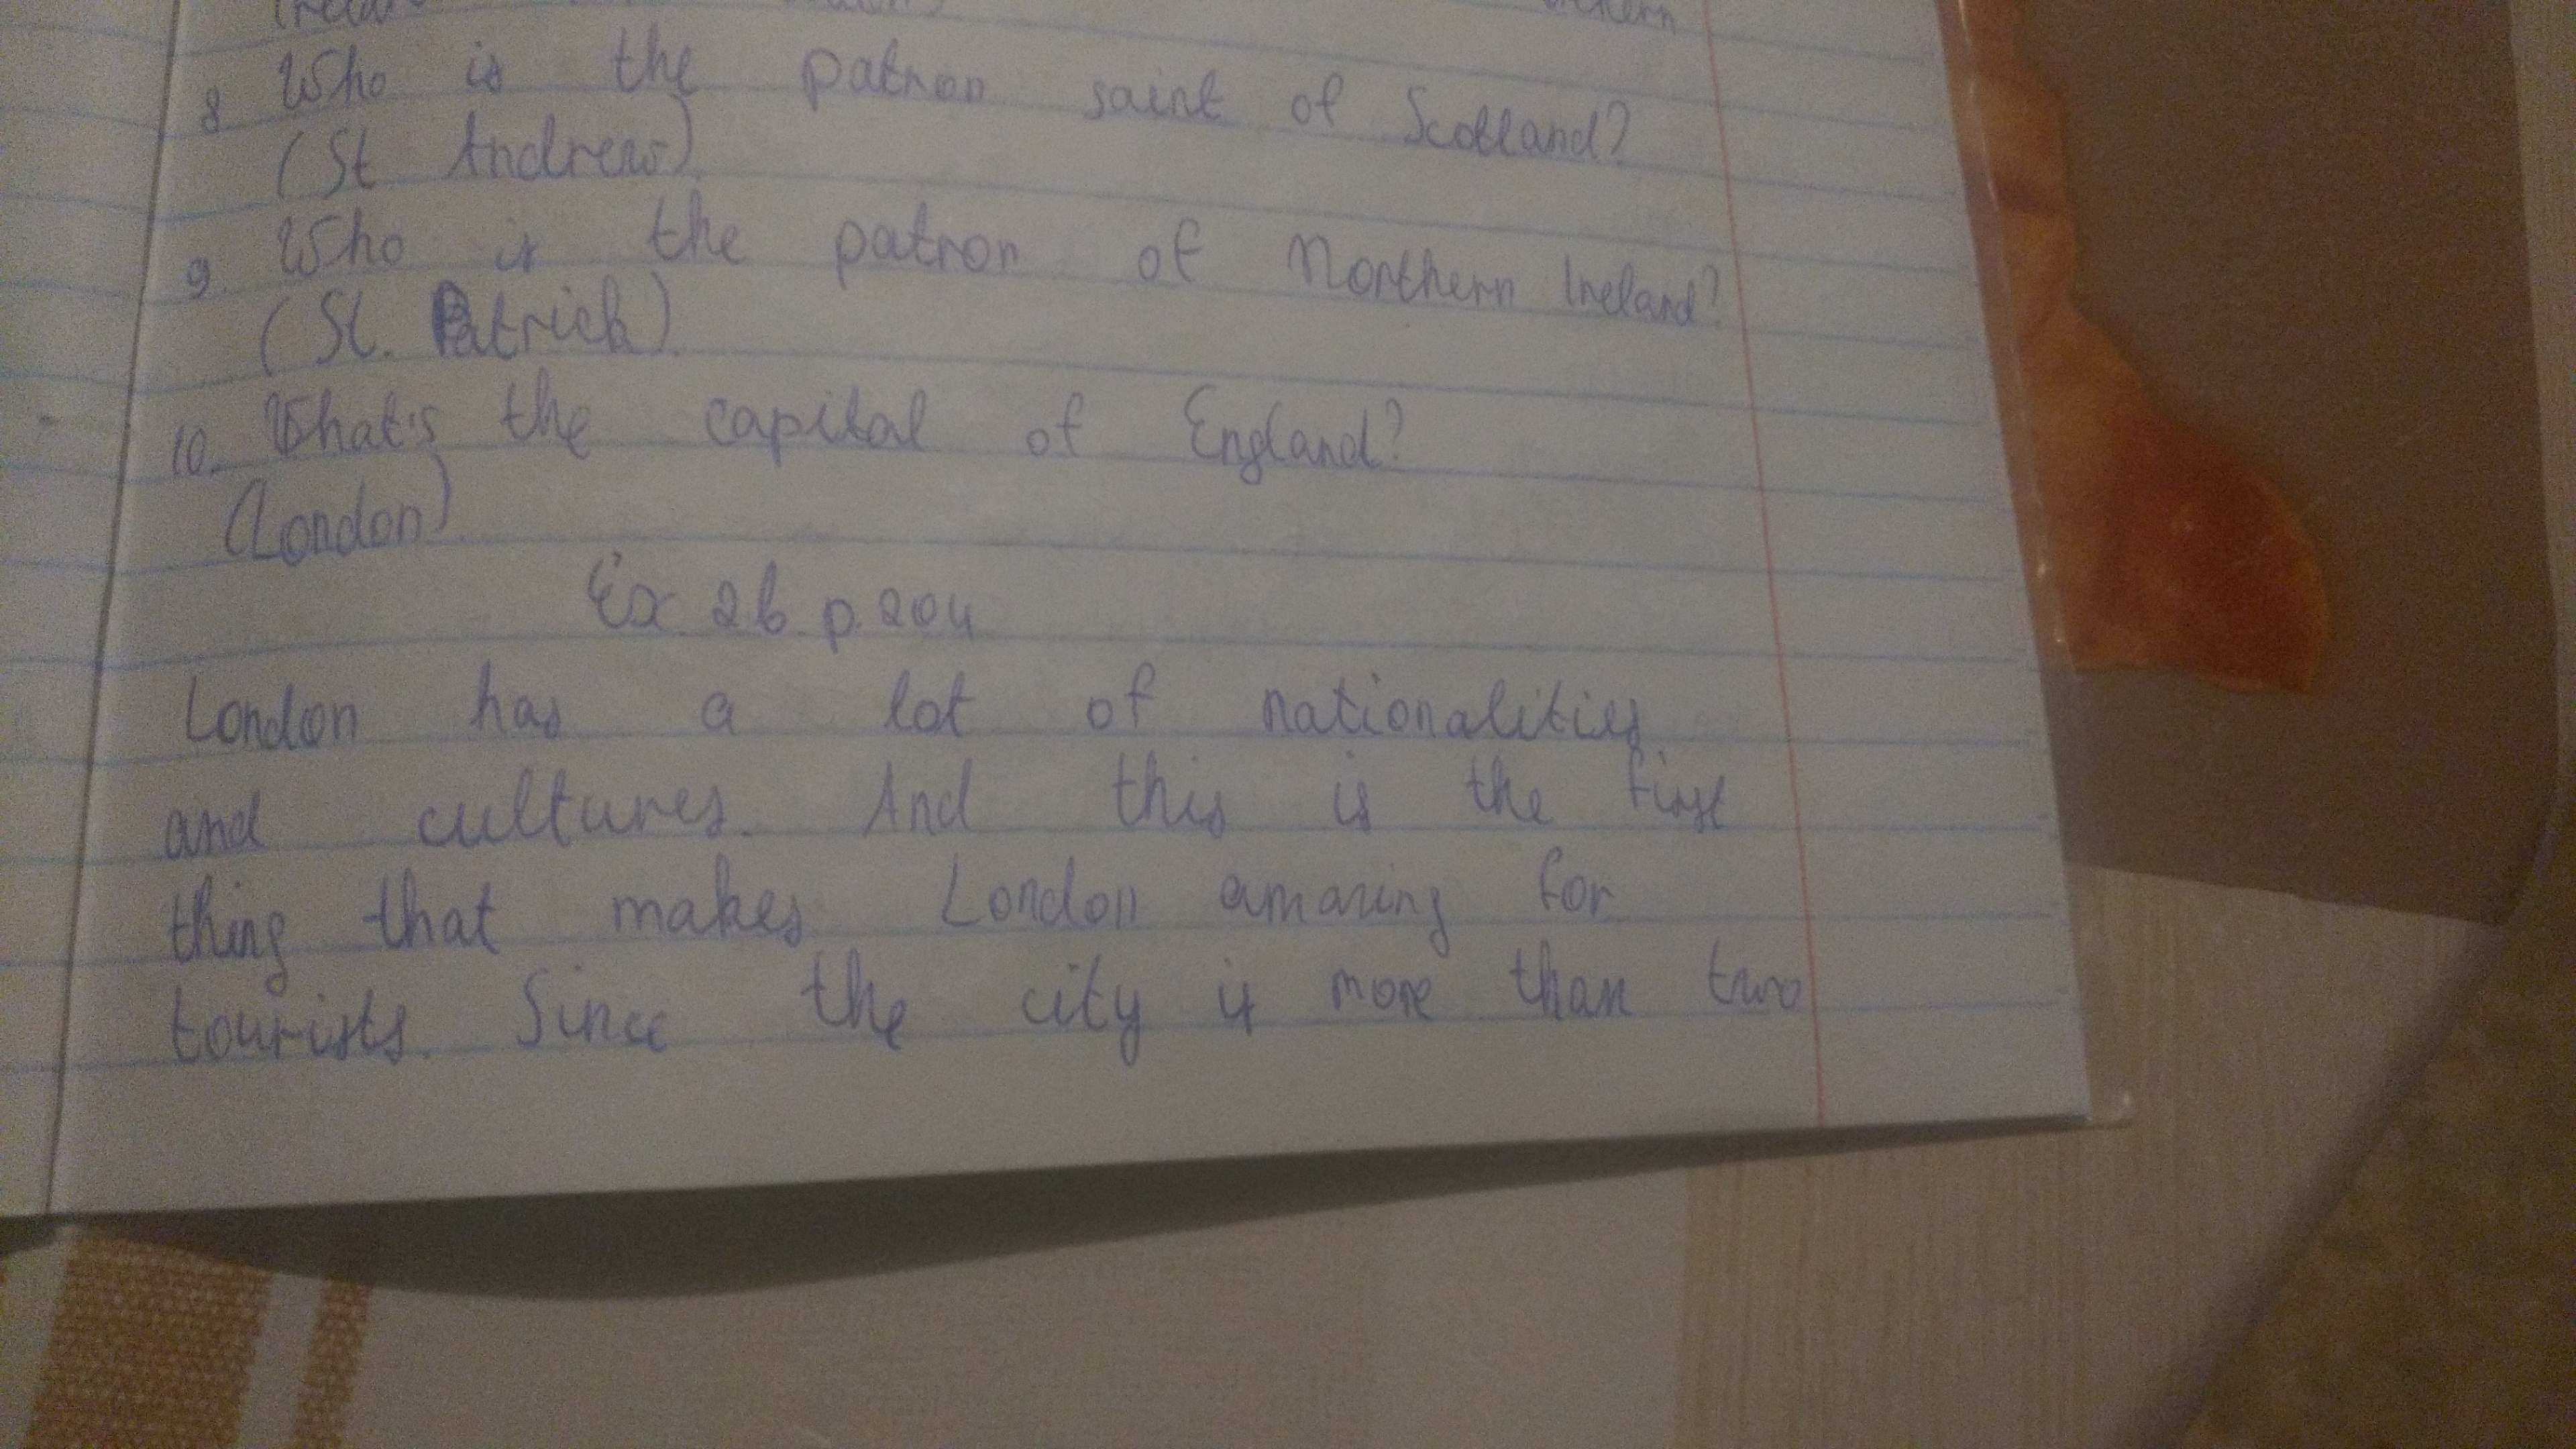 8 Who is the patron saint of Scotland?
(St Andrew)
9. Who is the patron of Northern Ireland?
(St. Patrick)
10. What's the capital of England?
(London)
Ex 2b p.204
London has a lot of nationalities
and cultures. And this is the first
thing that makes London amazing for
tourists. Since the city is more than two